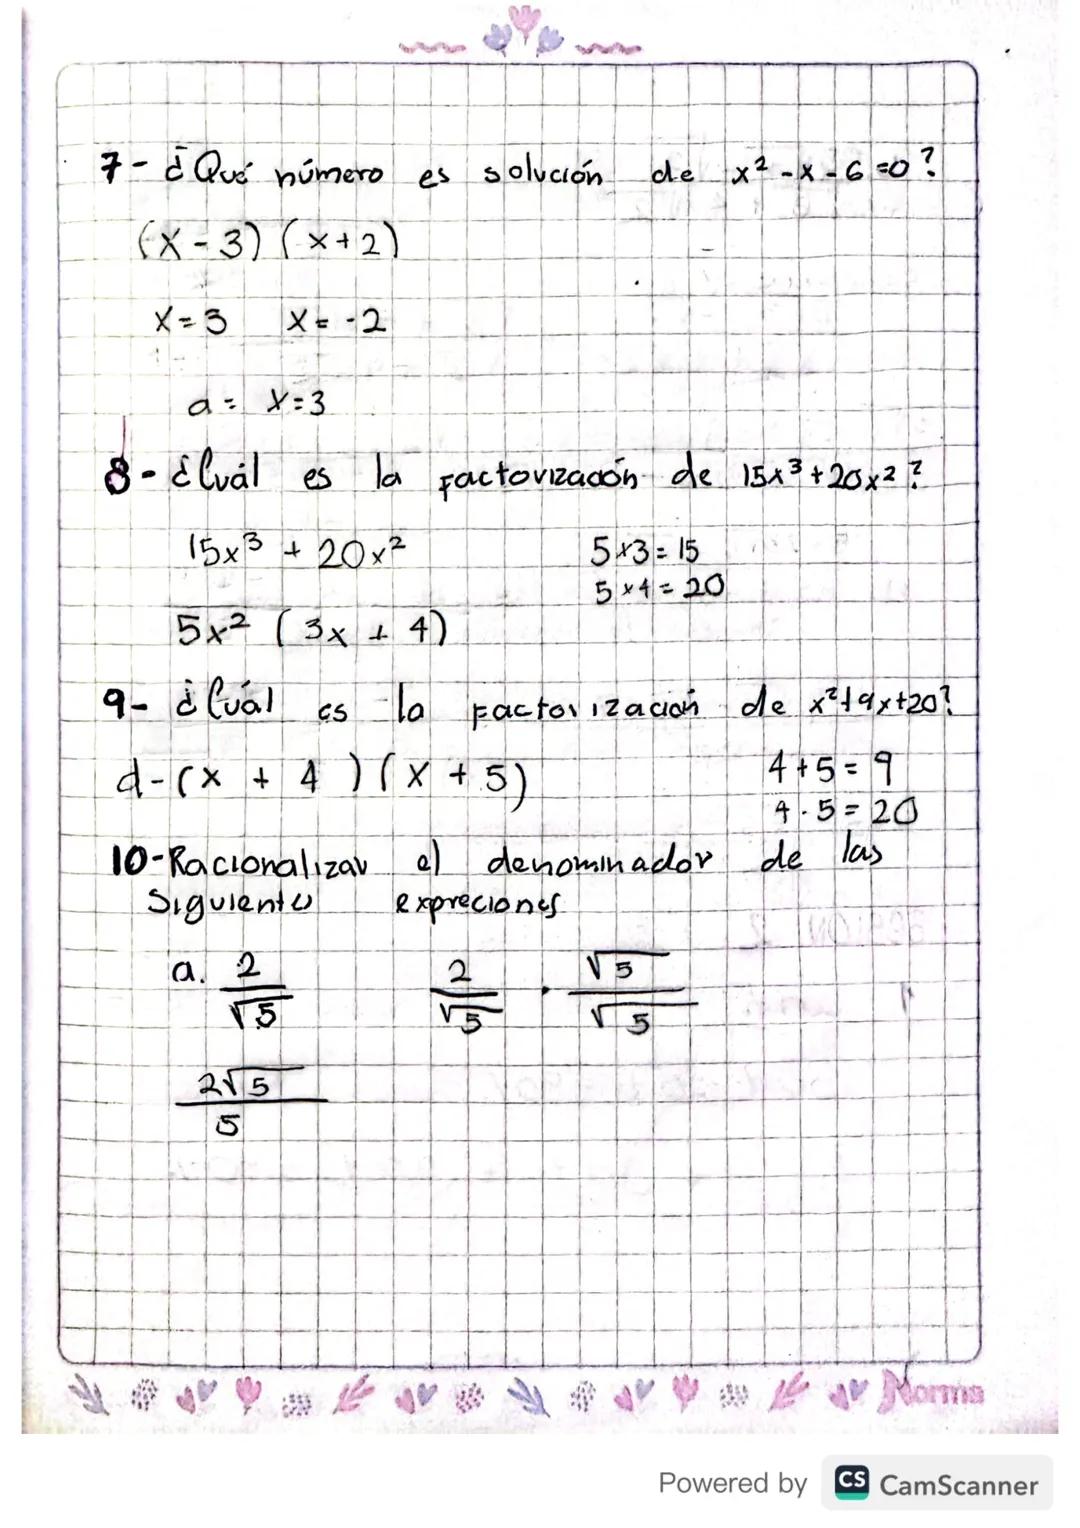 7- ¿Qué número es solución de x² -x -6 =0?
(x - 3) (x + 2)
x = 3 x = -2
a = x = 3
8- ¿Cuál es la Factorización de 15x³ + 20x²?
15x³ + 20x² 5x3 = 15
5 x 4 = 20
5x² (3x + 4)
9- ¿Cuál es la Factorización de x²+9x+20?
d- (x + 4) (x + 5) 4 + 5 = 9
4 . 5 = 20
10- Racionalizar el denominador de las
Siguientes expreciones
a. 2/√5 2/√5 · √5/√5
2√5/5
Norma
Powered by CS CamScanner